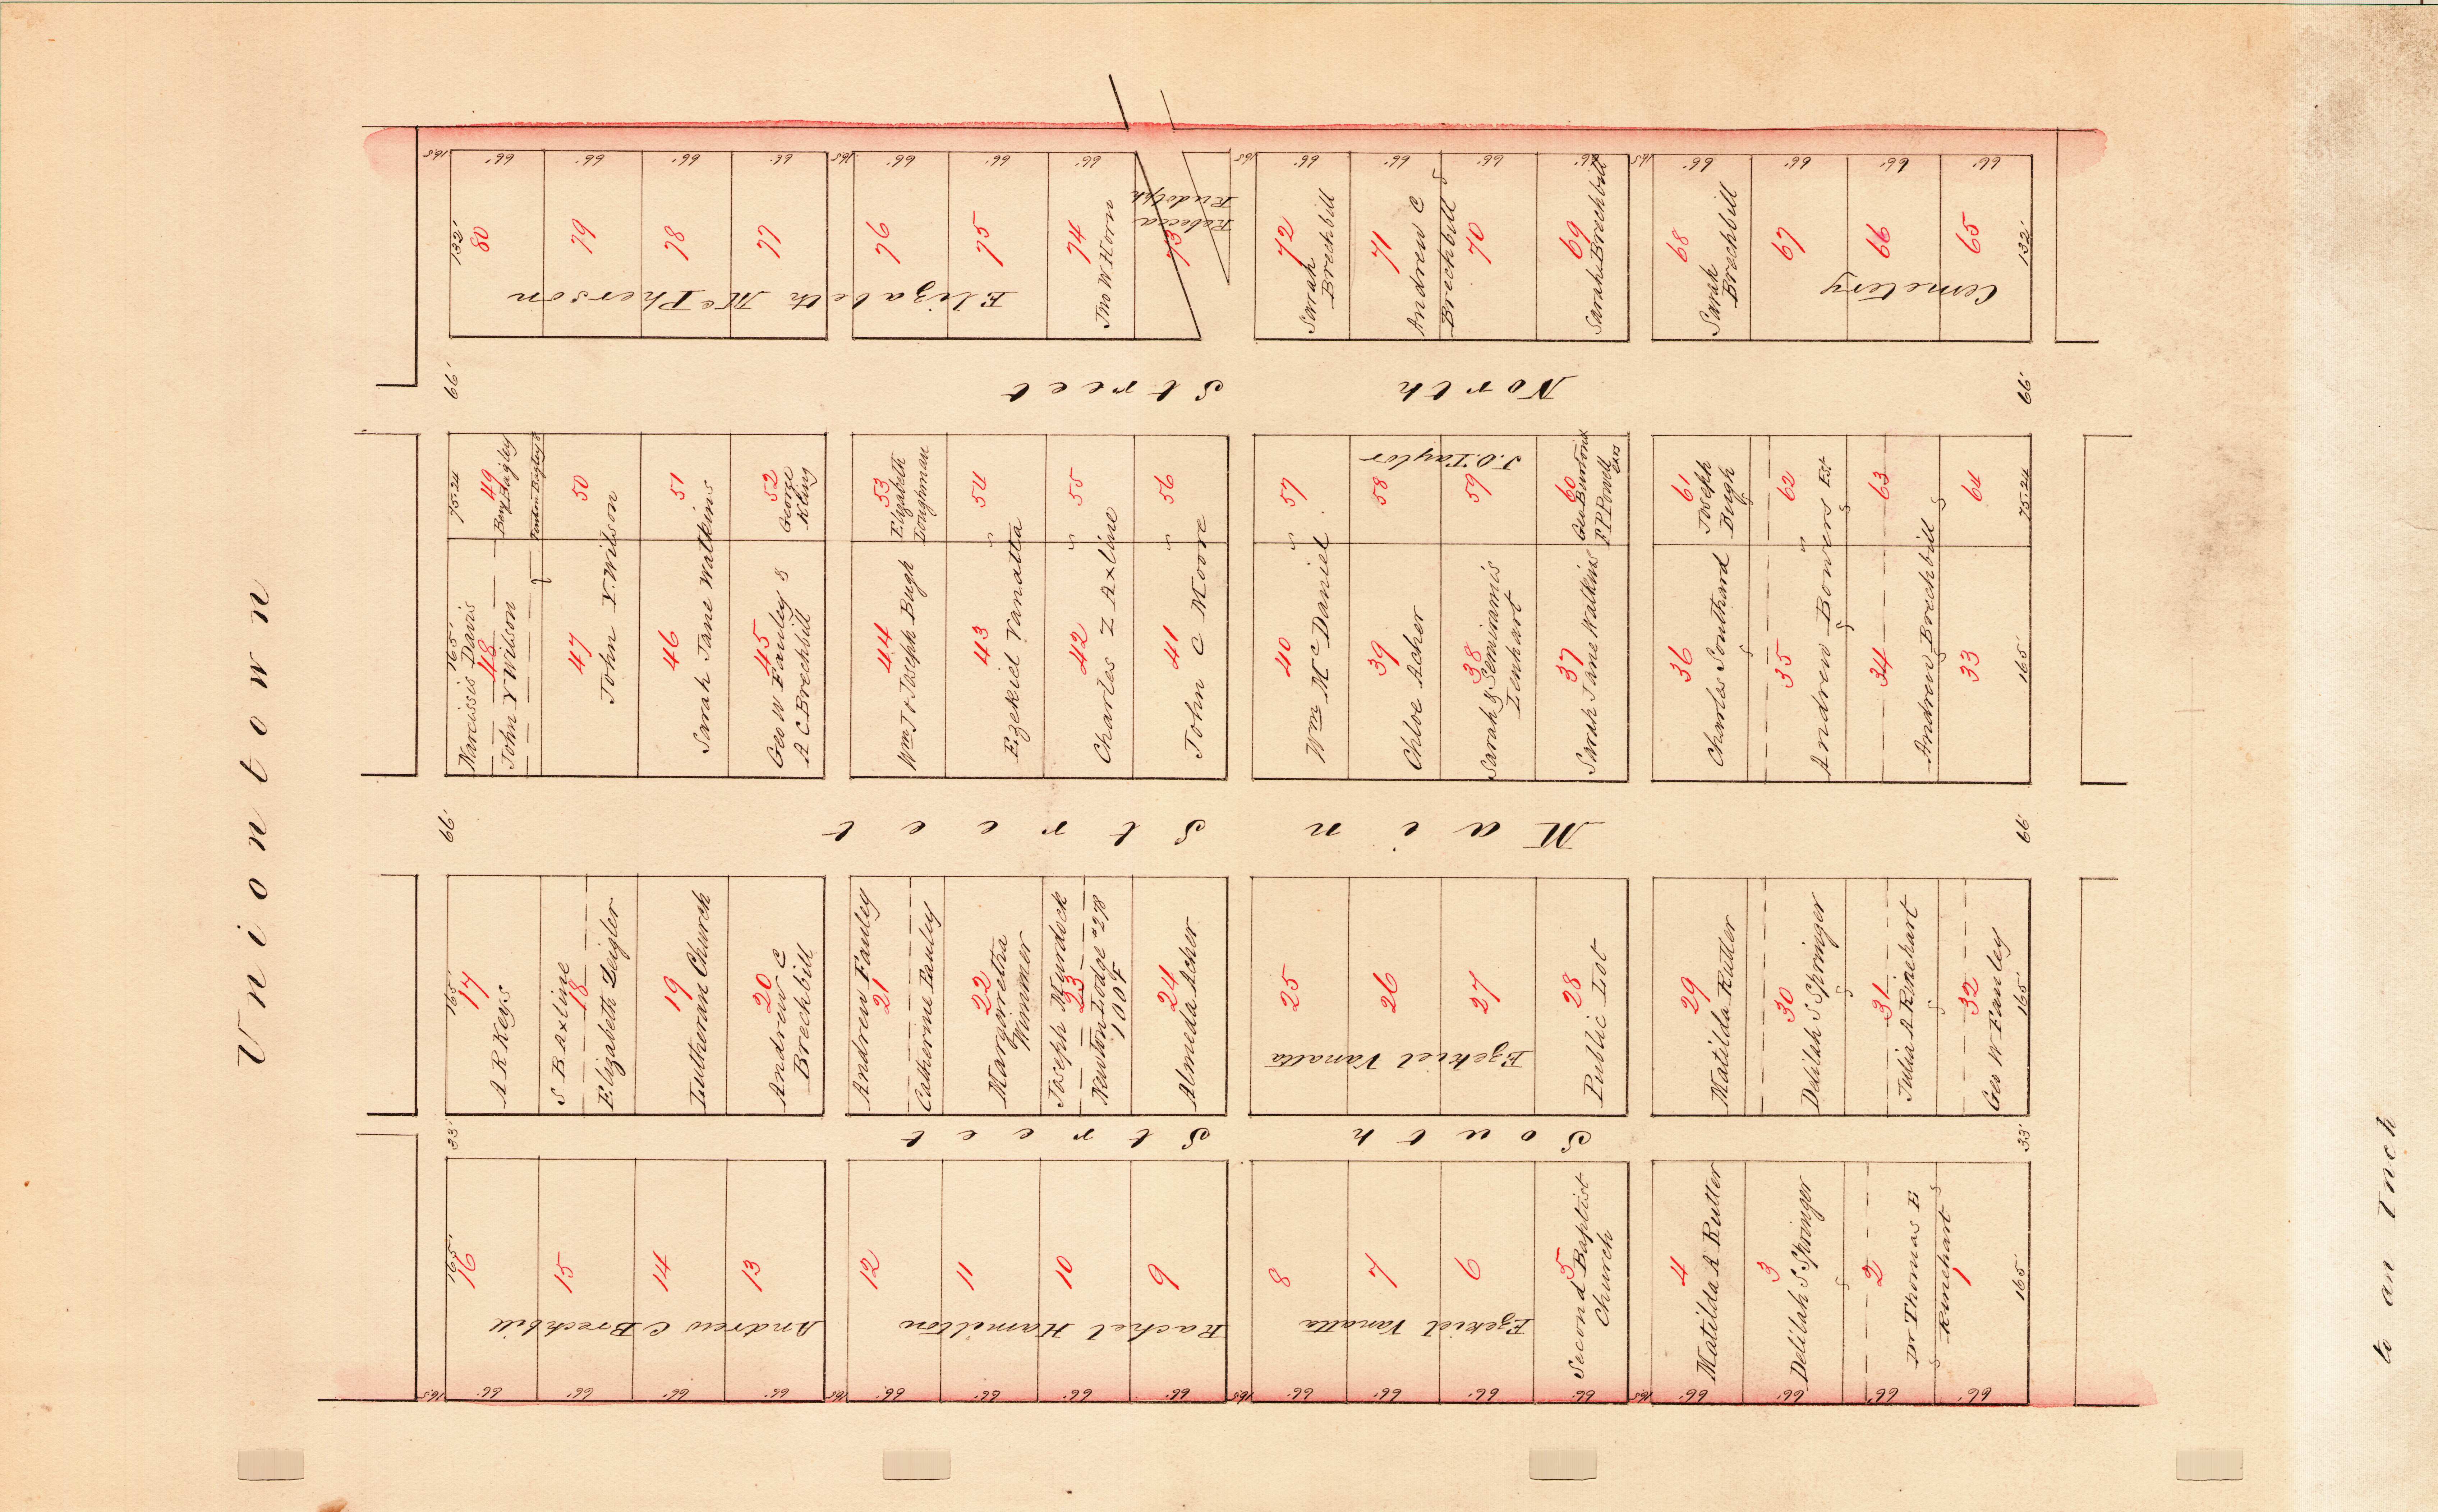 Uniontown
16.5' 66' 66' 66' 66' 16.5' 66' 66' 66' 16.5' 66' 66' 66' 66' 16.5' 66' 66' 66' 66'
132' 80 79 78 77 76 75 74 73 72 71 70 69 68 67 66 65 132'
Elizabeth Mc Pherson
Jno W Horn
Rebecca
Rudolph
Sarah
Brechbill
Andrew C
Brechbill
Sarah Brechbill
Sarah
Brechbill
Cemetery
66' North Street 66'
75.24 49 50 51 52 53 54 55 56 57 58 59 60 61 62 63 64 75.24
Benj Bagley
George
Kling
Elizabeth
Doughman
J.O. Taylor
Joseph
Bugh
165' 48 47 46 45 44 43 42 41 40 39 38 37 36 35 34 33 165'
Narcissis Davis
John Y Wilson
John Y. Wilson
Sarah Jane Watkins
Geo W Fauley &
A C Brechbill
Wm J & Joseph Bugh
Ezekiel Vanatta
Charles Z Axline
John C Moore
Wm Mc Daniel
Chloe Acher
Sarah & Semiramis
Lenhart
Sarah Jane Watkins
Charles Southard
Andrew Bowers Est
Andrew Brechbill
66' Main Street 66'
165' 17 18 19 20 21 22 23 24 25 26 27 28 29 30 31 32 165'
A R Keys
S B Axline
Elizabeth Zeigler
Lutheran Church
Andrew C
Brechbill
Andrew Fauley
Catherine Fauley
Margerretta
Wimmer
Joseph Murdock
Newton Lodge "278
I O O F
Almeda Acher
Ezekiel Vanatta
Public Lot
Matilda Rutter
Delilah S Springer
Julia A Rinehart
Geo W Fauley
33' South Street 33'
165' 16 15 14 13 12 11 10 9 8 7 6 5 4 3 2 1 165'
Andrew C Brechbill
Rachel Hamilton
Ezekiel Vanatta
Second Baptist
Church
Matilda A Rutter
Delilah S Springer
Dr Thomas E
Rinehart
16.5' 66' 66' 66' 66' 16.5' 66' 66' 66' 66' 16.5' 66' 66' 66' 66' 16.5' 66' 66' 66' 66'
to an Inch